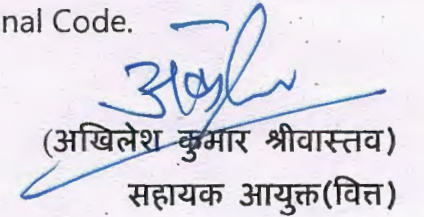 nal Code.
(अखिलेश कुमार श्रीवास्तव)
सहायक आयुक्त(वित्त)